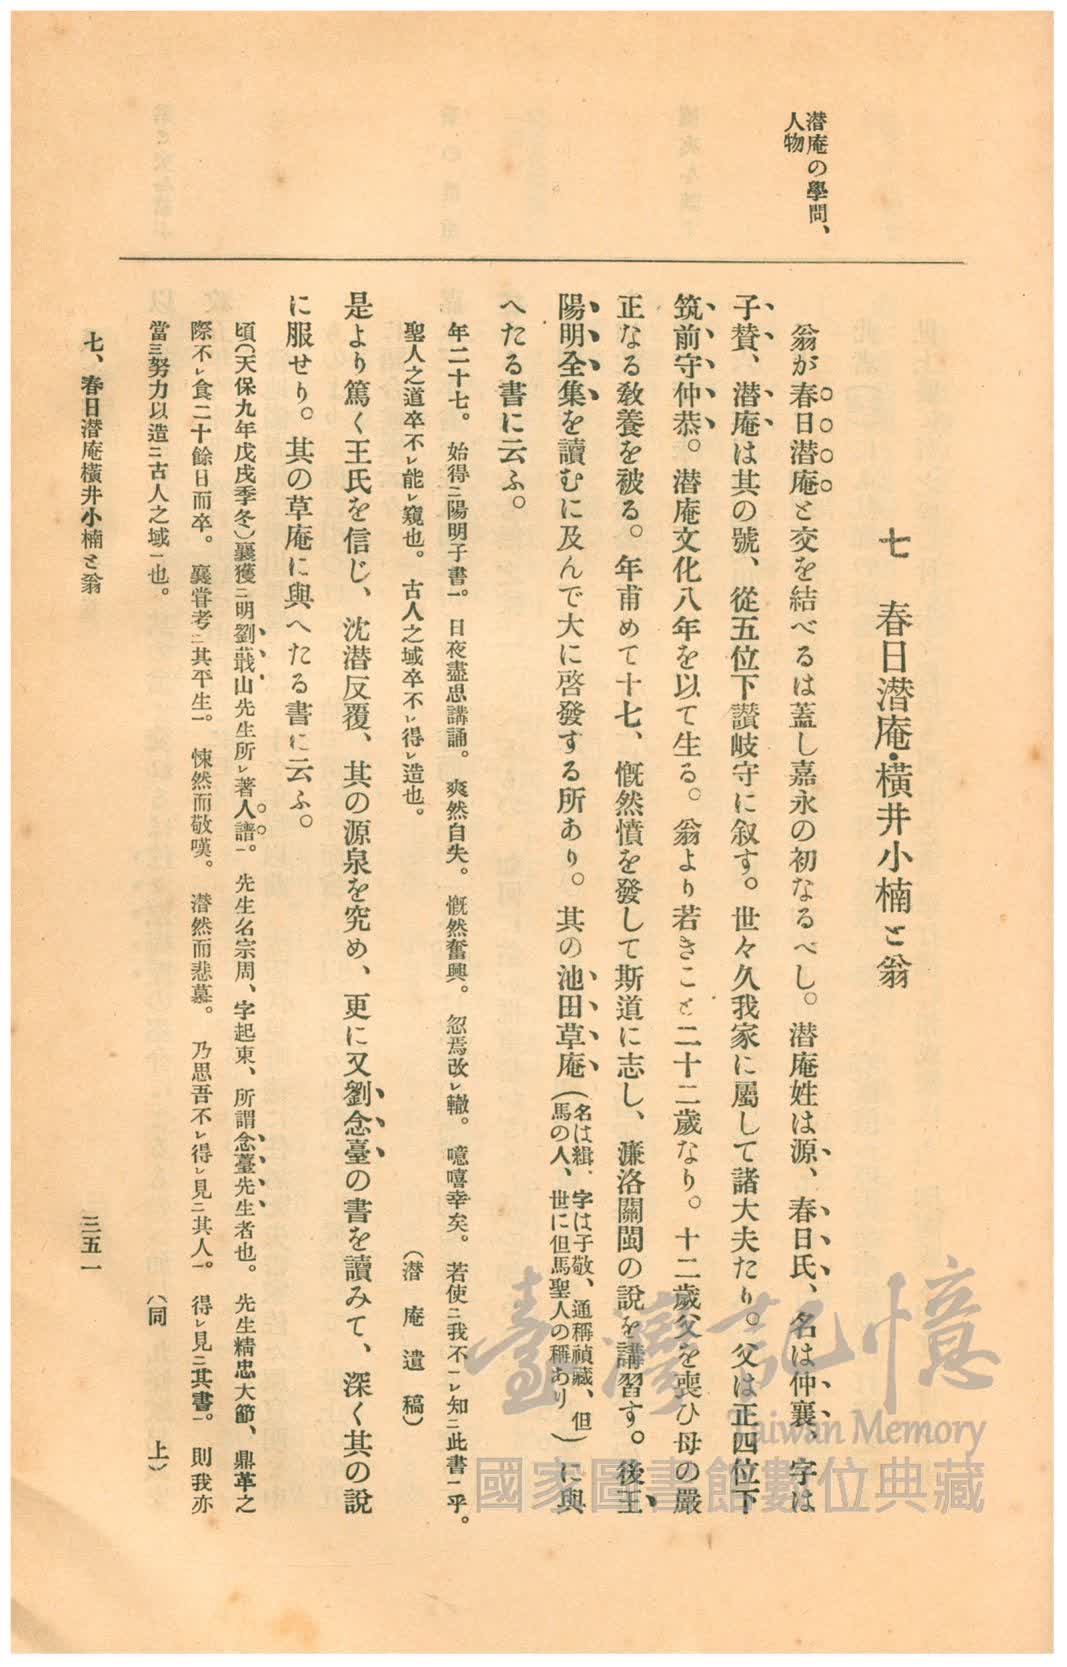 潜庵の學問、
人物
七　春日潜庵・橫井小楠と翁
翁が春日潜庵と交を結べるは蓋し嘉永の初なるべし。潜庵姓は源、春日氏、名は仲襄、字は
子賛、潜庵は其の號、從五位下讃岐守に叙す。世々久我家に屬して諸大夫たり。父は正四位下
筑前守仲恭。潜庵文化八年を以て生る。翁より若きこと二十二歲なり。十二歲父を喪ひ母の嚴
正なる敎養を被る。年甫めて十七、慨然憤を發して斯道に志し、濂洛關閩の說を講習す。後王
陽明全集を讀むに及んで大に啓發する所あり。其の池田草庵（名は緝、字は子敬、通稱禎藏、但
馬の人、世に但馬聖人の稱あり）に與
へたる書に云ふ。
年二十七。始得二陽明子書一。日夜盡思講誦。爽然自失。慨然奮興。忽焉改レ轍。噫嘻幸矣。若使二我不一レ知二此書一乎。
聖人之道卒不レ能レ窺也。古人之域卒不レ得レ造也。（潜庵遺稿）
是より篤く王氏を信じ、沈潜反覆、其の源泉を究め、更に又劉念臺の書を讀みて、深く其の說
に服せり。其の草庵に與へたる書に云ふ。
頃（天保九年戊戌季冬）襄獲二明劉蕺山先生所レ著人譜一。先生名宗周、字起東、所謂念臺先生者也。先生精忠大節、鼎革之
際不レ食二十餘日而卒。襄嘗考二其平生一。悚然而敬嘆。潜然而悲慕。乃思吾不レ得レ見二其人一。得レ見二其書一。則我亦
當三努力以造二古人之域一也。（同上）
七、春日潜庵橫井小楠と翁
三五一
臺灣記憶
Taiwan Memory
國家圖書館數位典藏